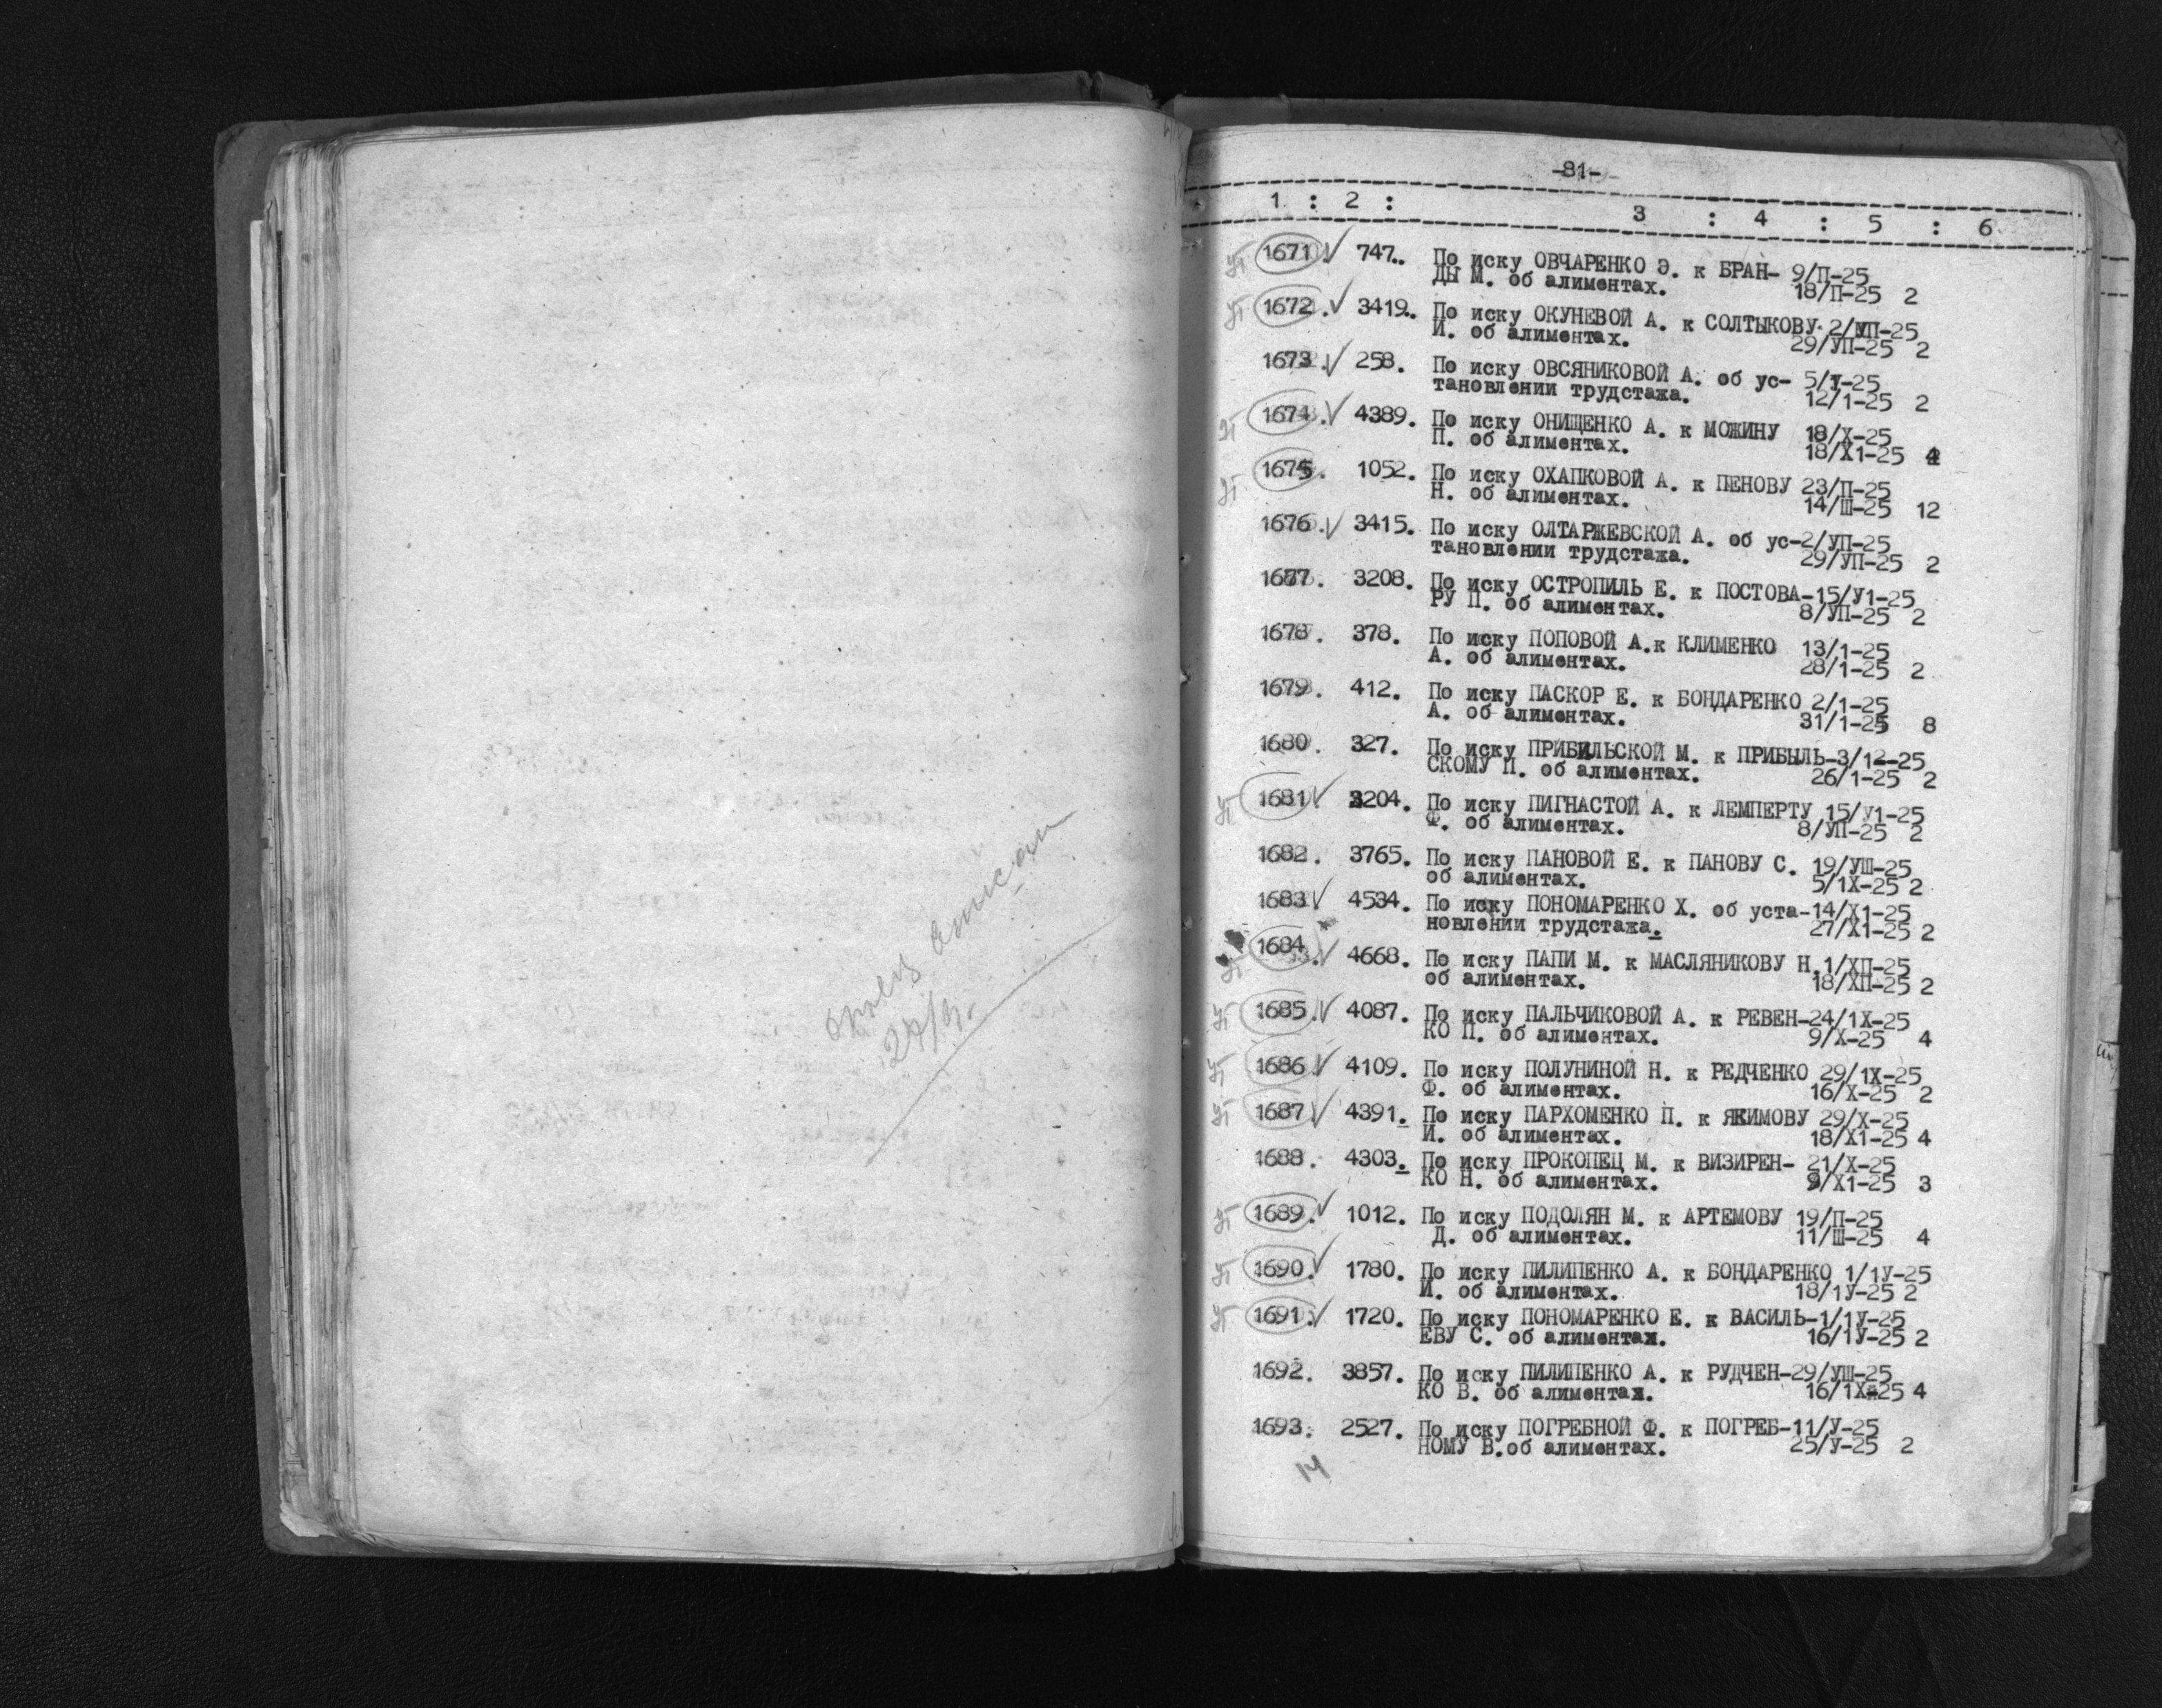 -81-
1 : 2 : 3 : 4 : 5 : 6
1671. 747. По иску ОВЧАРЕНКО Э. к БРАН- 9/П-25
ДЫ М. об алиментах. 18/П-25 2
1672. 3419. По иску ОКУНЕВОЙ А. к СОЛТЫКОВУ 2/УП-25
И. об алиментах. 29/УП-25 2
1673. 258. По иску ОВСЯНИКОВОЙ А. об ус- 5/1-25
тановлении трудстажа. 12/1-25 2
1674. 4389. По иску ОНИЩЕНКО А. к МОЖИНУ 18/Х-25
П. об алиментах. 18/Х1-25 4
1675. 1052. По иску ОХАПКОВОЙ А. к ПЕНОВУ 23/П-25
Н. об алиментах. 14/Ш-25 12
1676. 3415. По иску ОЛТАРЖЕВСКОЙ А. об ус-2/УП-25
тановлении трудстажа. 29/УП-25 2
1677. 3208. По иску ОСТРОПИЛЬ Е. к ПОСТОВА-15/У1-25
РУ П. об алиментах. 8/УП-25 2
1678. 378. По иску ПОПОВОЙ А.к КЛИМЕНКО 13/1-25
А. об алиментах. 28/1-25 2
1679. 412. По иску ПАСКОР Е. к БОНДАРЕНКО 2/1-25
А. об алиментах. 31/1-25 8
1680. 327. По иску ПРИБИЛЬСКОЙ М. к ПРИБЫЛЬ-3/12-25
СКОМУ П. об алиментах. 26/1-25 2
1681 3204. По иску ПИГНАСТОЙ А. к ЛЕМПЕРТУ 15/У1-25
Ф. об алиментах. 8/УП-25 2
1682. 3765. По иску ПАНОВОЙ Е. к ПАНОВУ С. 19/УШ-25
об алиментах. 5/1Х-25 2
1683 4534. По иску ПОНОМАРЕНКО Х. об уста-14/Х1-25
новлении трудстажа. 27/Х1-25 2
1684. 4668. По иску ПАПИ М. к МАСЛЯНИКОВУ Н.1/ХП-25
об алиментах. 18/ХП-25 2
1685. 4087. По иску ПАЛЬЧИКОВОЙ А. к РЕВЕН-24/1Х-25
КО П. об алиментах. 9/Х-25 4
1686. 4109. По иску ПОЛУНИНОЙ Н. к РЕДЧЕНКО 29/1Х-25
Ф. об алиментах. 16/Х-25 2
1687 4391. По иску ПАРХОМЕНКО П. к ЯКИМОВУ 29/Х-25
И. об алиментах. 18/Х1-25 4
1688. 4303. По иску ПРОКОПЕЦ М. к ВИЗИРЕН- 21/Х-25
КО Н. об алиментах. 9/Х1-25 3
1689. 1012. По иску ПОДОЛЯН М. к АРТЕМОВУ 19/П-25
Д. об алиментах. 11/Ш-25 4
1690. 1780. По иску ПИЛИПЕНКО А. к БОНДАРЕНКО 1/1У-25
И. об алиментах. 18/1У-25 2
1691. 1720. По иску ПОНОМАРЕНКО Е. к ВАСИЛЬ-1/1У-25
ЕВУ С. об алиментах. 16/1У-25 2
1692. 3857. По иску ПИЛИПЕНКО А. к РУДЧЕН-29/УШ-25
КО В. об алиментах. 16/1Х-25 4
1693. 2527. По иску ПОГРЕБНОЙ Ф. к ПОГРЕБ-11/У-25
НОМУ В.об алиментах. 25/У-25 2
14